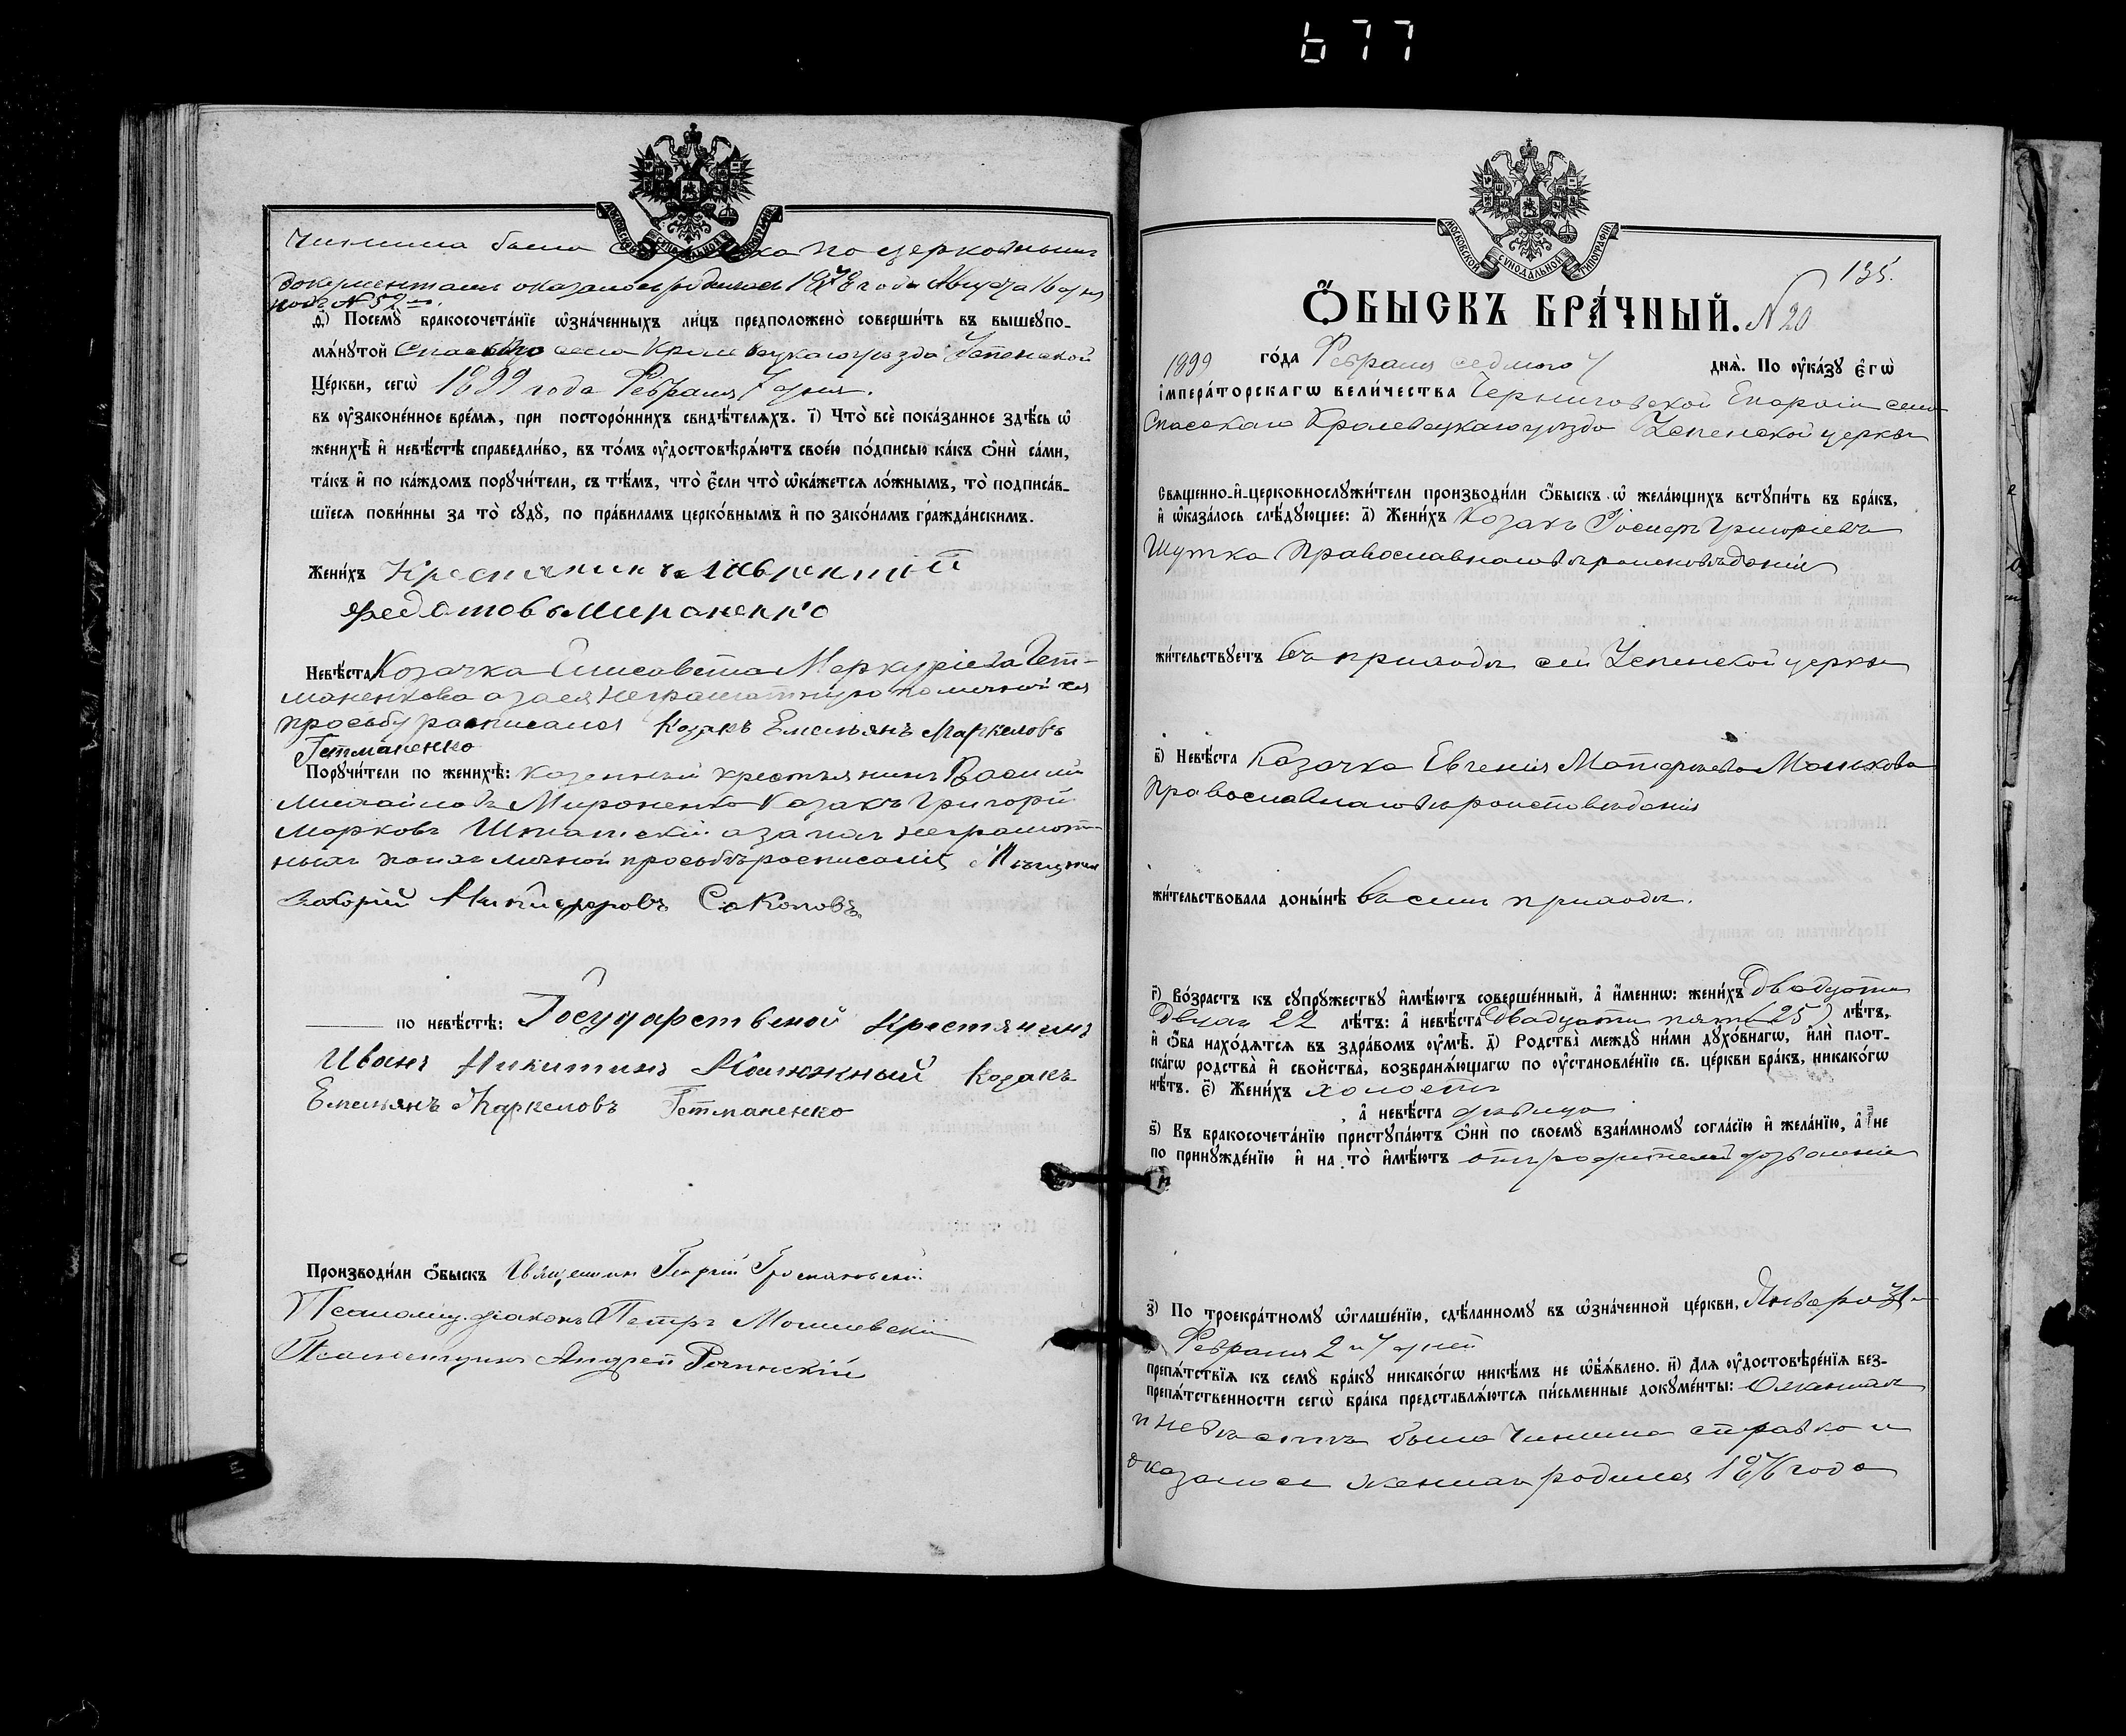 677
МОСКОВСКОЙ СѴНОДАЛЬНОЙ ТИПОГРАФІИ
Чинина была справка по церковнымъ
документамъ оказалось родилась 1878 года Августа 16 дня
подъ № 52мъ.
ѳ҃) Посемꙋ̀ бракосочета́нїе ѡ҆зна́ченныхъ ли́цъ предположено̀ соверши́ть въ вышеꙋпо-
мѧ́нꙋтой Спаского села Кролевецкаго уезда Успенской
Це́ркви, сегѡ̀ 1899 года Февраля 7 дня.
въ оу҆зако́ненное вре́мѧ, при посторо́ннихъ свидѣ́телѧхъ. і҃) Что̀ всѐ пока́занное здѣ́сь ѡ҆
женихѣ̀ и҆ невѣ́стѣ справедли́во, въ то́мъ оу҆достовѣрѧ́ютъ свое́ю по́дписью ка́къ ѻ҆нѝ са́ми,
та́къ и҆ по ка́ждомъ порꙋчи́тели, съ тѣ́мъ, что̀ є҆́сли что̀ ѡ҆ка́жетсѧ ло́жнымъ, то̀ подписа́в-
шїесѧ пови́нны за то̀ сꙋдꙋ̀, по пра́виламъ церко́внымъ и҆ по зако́намъ гражда́нскимъ.
Жени́хъ Крестянинъ Лаврентій
Федотовъ Мироненко
Невѣ́ста Козачка Елисавета Меркуріева Гет-
маненкова а за ея неграмотную по личной ея
просьбу расписался Козакъ Емельянъ Маркеловъ
Гетманенко
Порꙋчи́тели по женихѣ̀: казенный крестьянинъ Василий
Михайловъ Мироненко Казакъ Григорій
Марковъ а за нихъ неграмот-
ныхъ по ихъ личной просьбѣ росписался
Никифоровъ Соколовъ
по невѣ́стѣ: Государственой Крестянинъ
Иванъ Никитинъ Козакъ
Емельянъ Маркеловъ Гетманенко
Производи́ли ѻ҆́быскъ Священникъ Георгій
Псаломщ. діаконъ Петръ
Псаломщикъ Андрей
МОСКОВСКОЙ СѴНОДАЛЬНОЙ ТИПОГРАФІИ
135.
Ѻ҆́БЫСКЪ БРА́ЧНЫЙ. № 20
1899 го́да Февраля седьмого 7 днѧ̀. По оу҆ка́зꙋ є҆гѡ̀
і҆мпера́торскагѡ вели́чества Черниговской Епархіи села
Спаского Кролевецкаго уезда Успенской церкви
Свѧщенно-и҆-церковнослꙋжи́тели производи́ли ѻ҆́быскъ ѡ҆ жела́ющихъ встꙋпи́ть въ бра́къ,
и҆ ѡ҆каза́лось слѣ́дꙋющее: а҃) Жени́хъ Козакъ Іосифъ Григоріевъ
Шутка православнаго вѣроисповѣданія
жи́тельствꙋетъ въ приходѣ сей Успенской церкви
в҃) Невѣ́ста Казачка Евгенія Матфеева
православнаго вѣроисповѣданія
жи́тельствовала доны́нѣ въ семъ приходѣ.
г҃) Во́зрастъ къ сꙋпрꙋ́жествꙋ и҆мѣ́ютъ соверше́нный, а҆ и҆́меннѡ: жени́хъ двадцати
двухъ 22 лѣ́тъ: а҆ невѣ́ста двадцати пяти (25) лѣ́тъ,
и҆ ѻ҆́ба нахо́дѧтсѧ въ здра́вомъ оу҆мѣ̀. д҃) Родства̀ междꙋ̀ ни́ми дꙋхо́внагѡ, и҆лѝ плот-
ска́гѡ родства̀ и҆ свойства̀, возбранѧ́ющагѡ по оу҆становле́нїю св. це́ркви бра́къ, никако́гѡ
нѣ́тъ. є҃) Жени́хъ холостъ
а҆ невѣ́ста дѣвица
ѕ҃) Къ бракосочета́нїю пристꙋпа́ютъ ѻ҆нѝ по своемꙋ̀ взаи́мномꙋ согла́сїю и҆ жела́нїю, а҆ не
по принꙋжде́нїю и҆ на то̀ и҆мѣ́ютъ отъ родителей дозволеніе
з҃) По троекра́тномꙋ ѡ҆глаше́нїю, сдѣ́ланномꙋ въ ѡ҆зна́ченной це́ркви, Января 31
Февраля 2 и 7 дней
препѧ́тствїѧ къ семꙋ̀ бра́кꙋ никако́гѡ никѣ́мъ не ѡ҆б̾ѧ́влено. и҃) Длѧ оу҆достовѣре́нїѧ без-
препѧ́тственности сегѡ̀ бра́ка представлѧ́ютсѧ пи́сьменные докꙋме́нты: О женихѣ
и невѣстѣ была чинина справка и
оказалось женихъ родился 1876 года